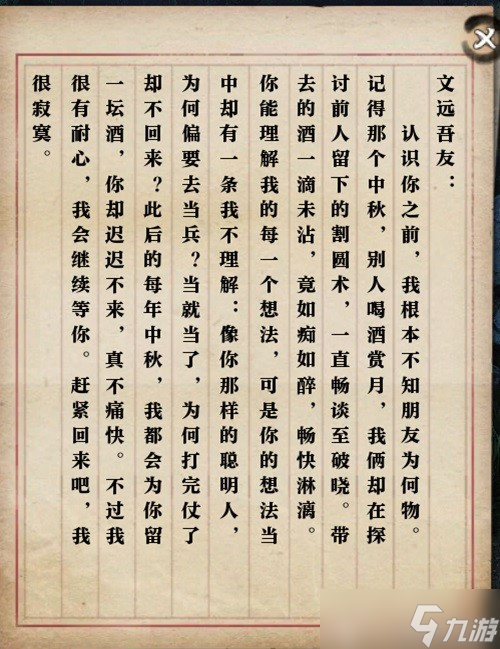 文远吾友：
认识你之前，我根本不知朋友为何物。
记得那个中秋，别人喝酒赏月，我俩却在探
讨前人留下的割圆术，一直畅谈至破晓。带
去的酒一滴未沾，竟如痴如醉，畅快淋漓。
你能理解我的每一个想法，可是你的想法当
中却有一条我不理解：像你那样的聪明人，
为何偏要去当兵？当就当了，为何打完仗了
却不回来？此后的每年中秋，我都会为你留
一坛酒，你却迟迟不来，真不痛快。不过我
很有耐心，我会继续等你。赶紧回来吧，我
很寂寞。
九游